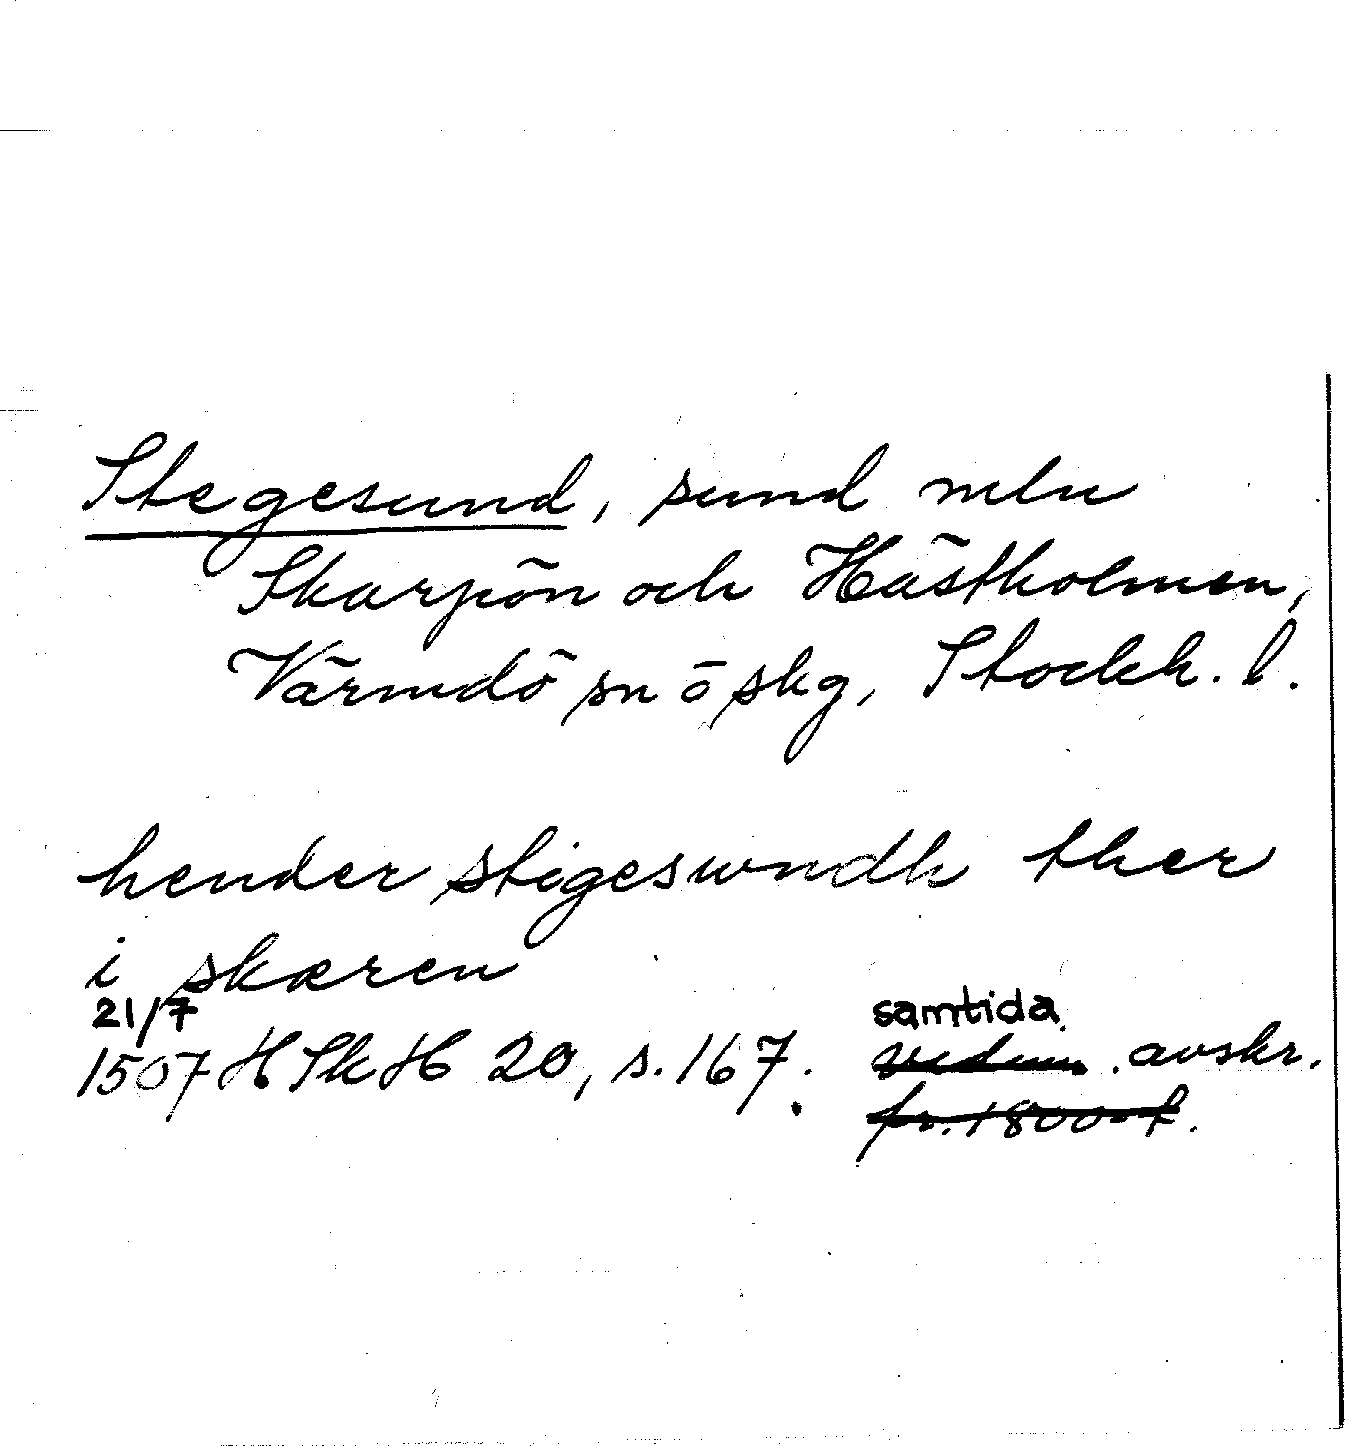 Stegesund, sund mln
Skarpön och Hästholmen,
Värmdö sn ö skg, Stockh. l.
hender stigeswndh ther
i skæren
21/7
samtida
1507 HSkH 20, s. 167. avskr.
fr. 1800-t.